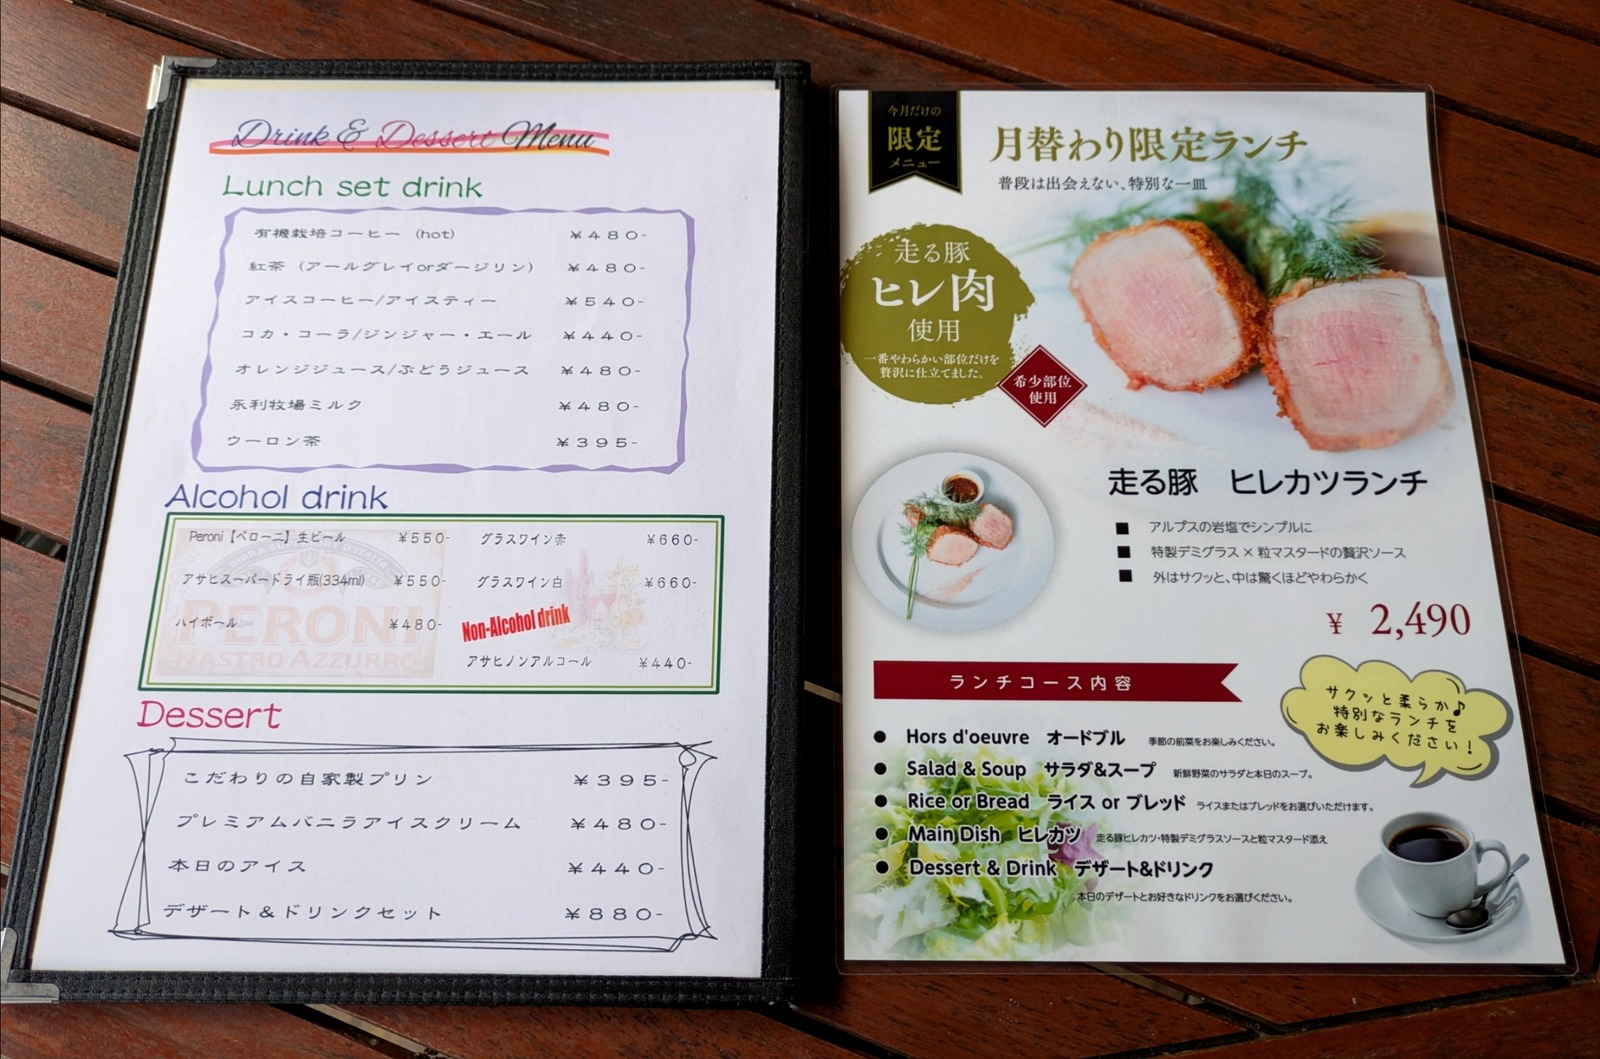 Drink & Dessert Menu
Lunch set drink
有機栽培コーヒー (hot) ￥480-
紅茶 (アールグレイorダージリン) ￥480-
アイスコーヒー/アイスティー ￥540-
コカ・コーラ/ジンジャー・エール ￥440-
オレンジジュース/ぶどうジュース ￥480-
永利牧場ミルク ￥480-
ウーロン茶 ￥395-
Alcohol drink
Peroni【ペローニ】生ビール ￥550-
アサヒスーパードライ瓶(334ml) ￥550-
ハイボール ￥480-
PERONI
NASTRO AZZURRO
グラスワイン赤 ￥660-
グラスワイン白 ￥660-
Non-Alcohol drink
アサヒノンアルコール ￥440-
Dessert
こだわりの自家製プリン ￥395-
プレミアムバニラアイスクリーム ￥480-
本日のアイス ￥440-
デザート＆ドリンクセット ￥880-
今月だけの
限定
メニュー
月替わり限定ランチ
普段は出会えない、特別な一皿
走る豚
ヒレ肉
使用
一番やわらかい部位だけを
贅沢に仕立てました。
希少部位
使用
走る豚 ヒレカツランチ
■ アルプスの岩塩でシンプルに
■ 特製デミグラス×粒マスタードの贅沢ソース
■ 外はサクッと、中は驚くほどやわらかく
￥ 2,490
ランチコース内容
サクッと柔らか♪
特別なランチを
お楽しみください！
● Hors d'oeuvre オードブル 季節の前菜をお楽しみください。
● Salad & Soup サラダ&スープ 新鮮野菜のサラダと本日のスープ。
● Rice or Bread ライス or ブレッド ライスまたはブレッドをお選びいただけます。
● Main Dish ヒレカツ 走る豚ヒレカツ・特製デミグラスソースと粒マスタード添え
● Dessert & Drink デザート&ドリンク
本日のデザートとお好きなドリンクをお選びください。